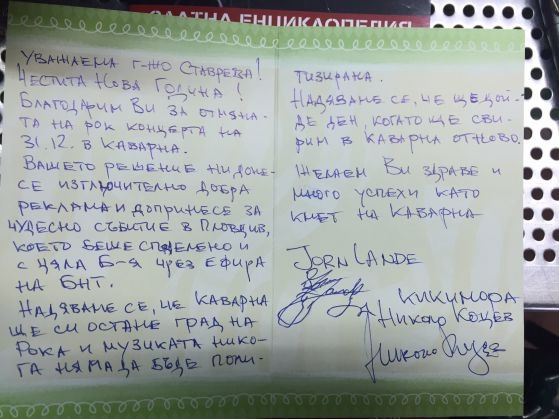 ЗЛАТНА ЕНЦИКЛОПЕДИЯ
УВАЖАЕМА Г-ЖО СТАВРЕВА!
ЧЕСТИТА НОВА ГОДИНА!
БЛАГОДАРИМ ВИ ЗА ОТМЯНА-
ТА НА РОК КОНЦЕРТА НА
31.12. В КАВАРНА.
ВАШЕТО РЕШЕНИЕ НИ ДОНЕ-
СЕ ИЗКЛЮЧИТЕЛНО ДОБРА
РЕКЛАМА И ДОПРИНЕСЕ ЗА
ЧУДЕСНО СЪБИТИЕ В ПЛОВДИВ,
КОЕТО БЕШЕ СПОДЕЛЕНО И
С ЦЯЛА Б-Я ЧРЕЗ ЕФИРА
НА БНТ.
НАДЯВАМЕ СЕ, ЧЕ КАВАРНА
ЩЕ СИ ОСТАНЕ ГРАД НА
РОКА И МУЗИКАТА НИКО-
ГА НЯМА ДА БЪДЕ ПОЛИ-
ТИЗИРАНА.
НАДЯВАМЕ СЕ, ЧЕ ЩЕ ДОЙ-
ДЕ ДЕН, КОГАТО ЩЕ СВИ-
РИМ В КАВАРНА ОТНОВО.
ЖЕЛАЕМ ВИ ЗДРАВЕ И
МНОГО УСПЕХИ КАТО
КМЕТ НА КАВАРНА
JORN LANDE
КИКИМОРА
НИКОЛО КОЦЕВ